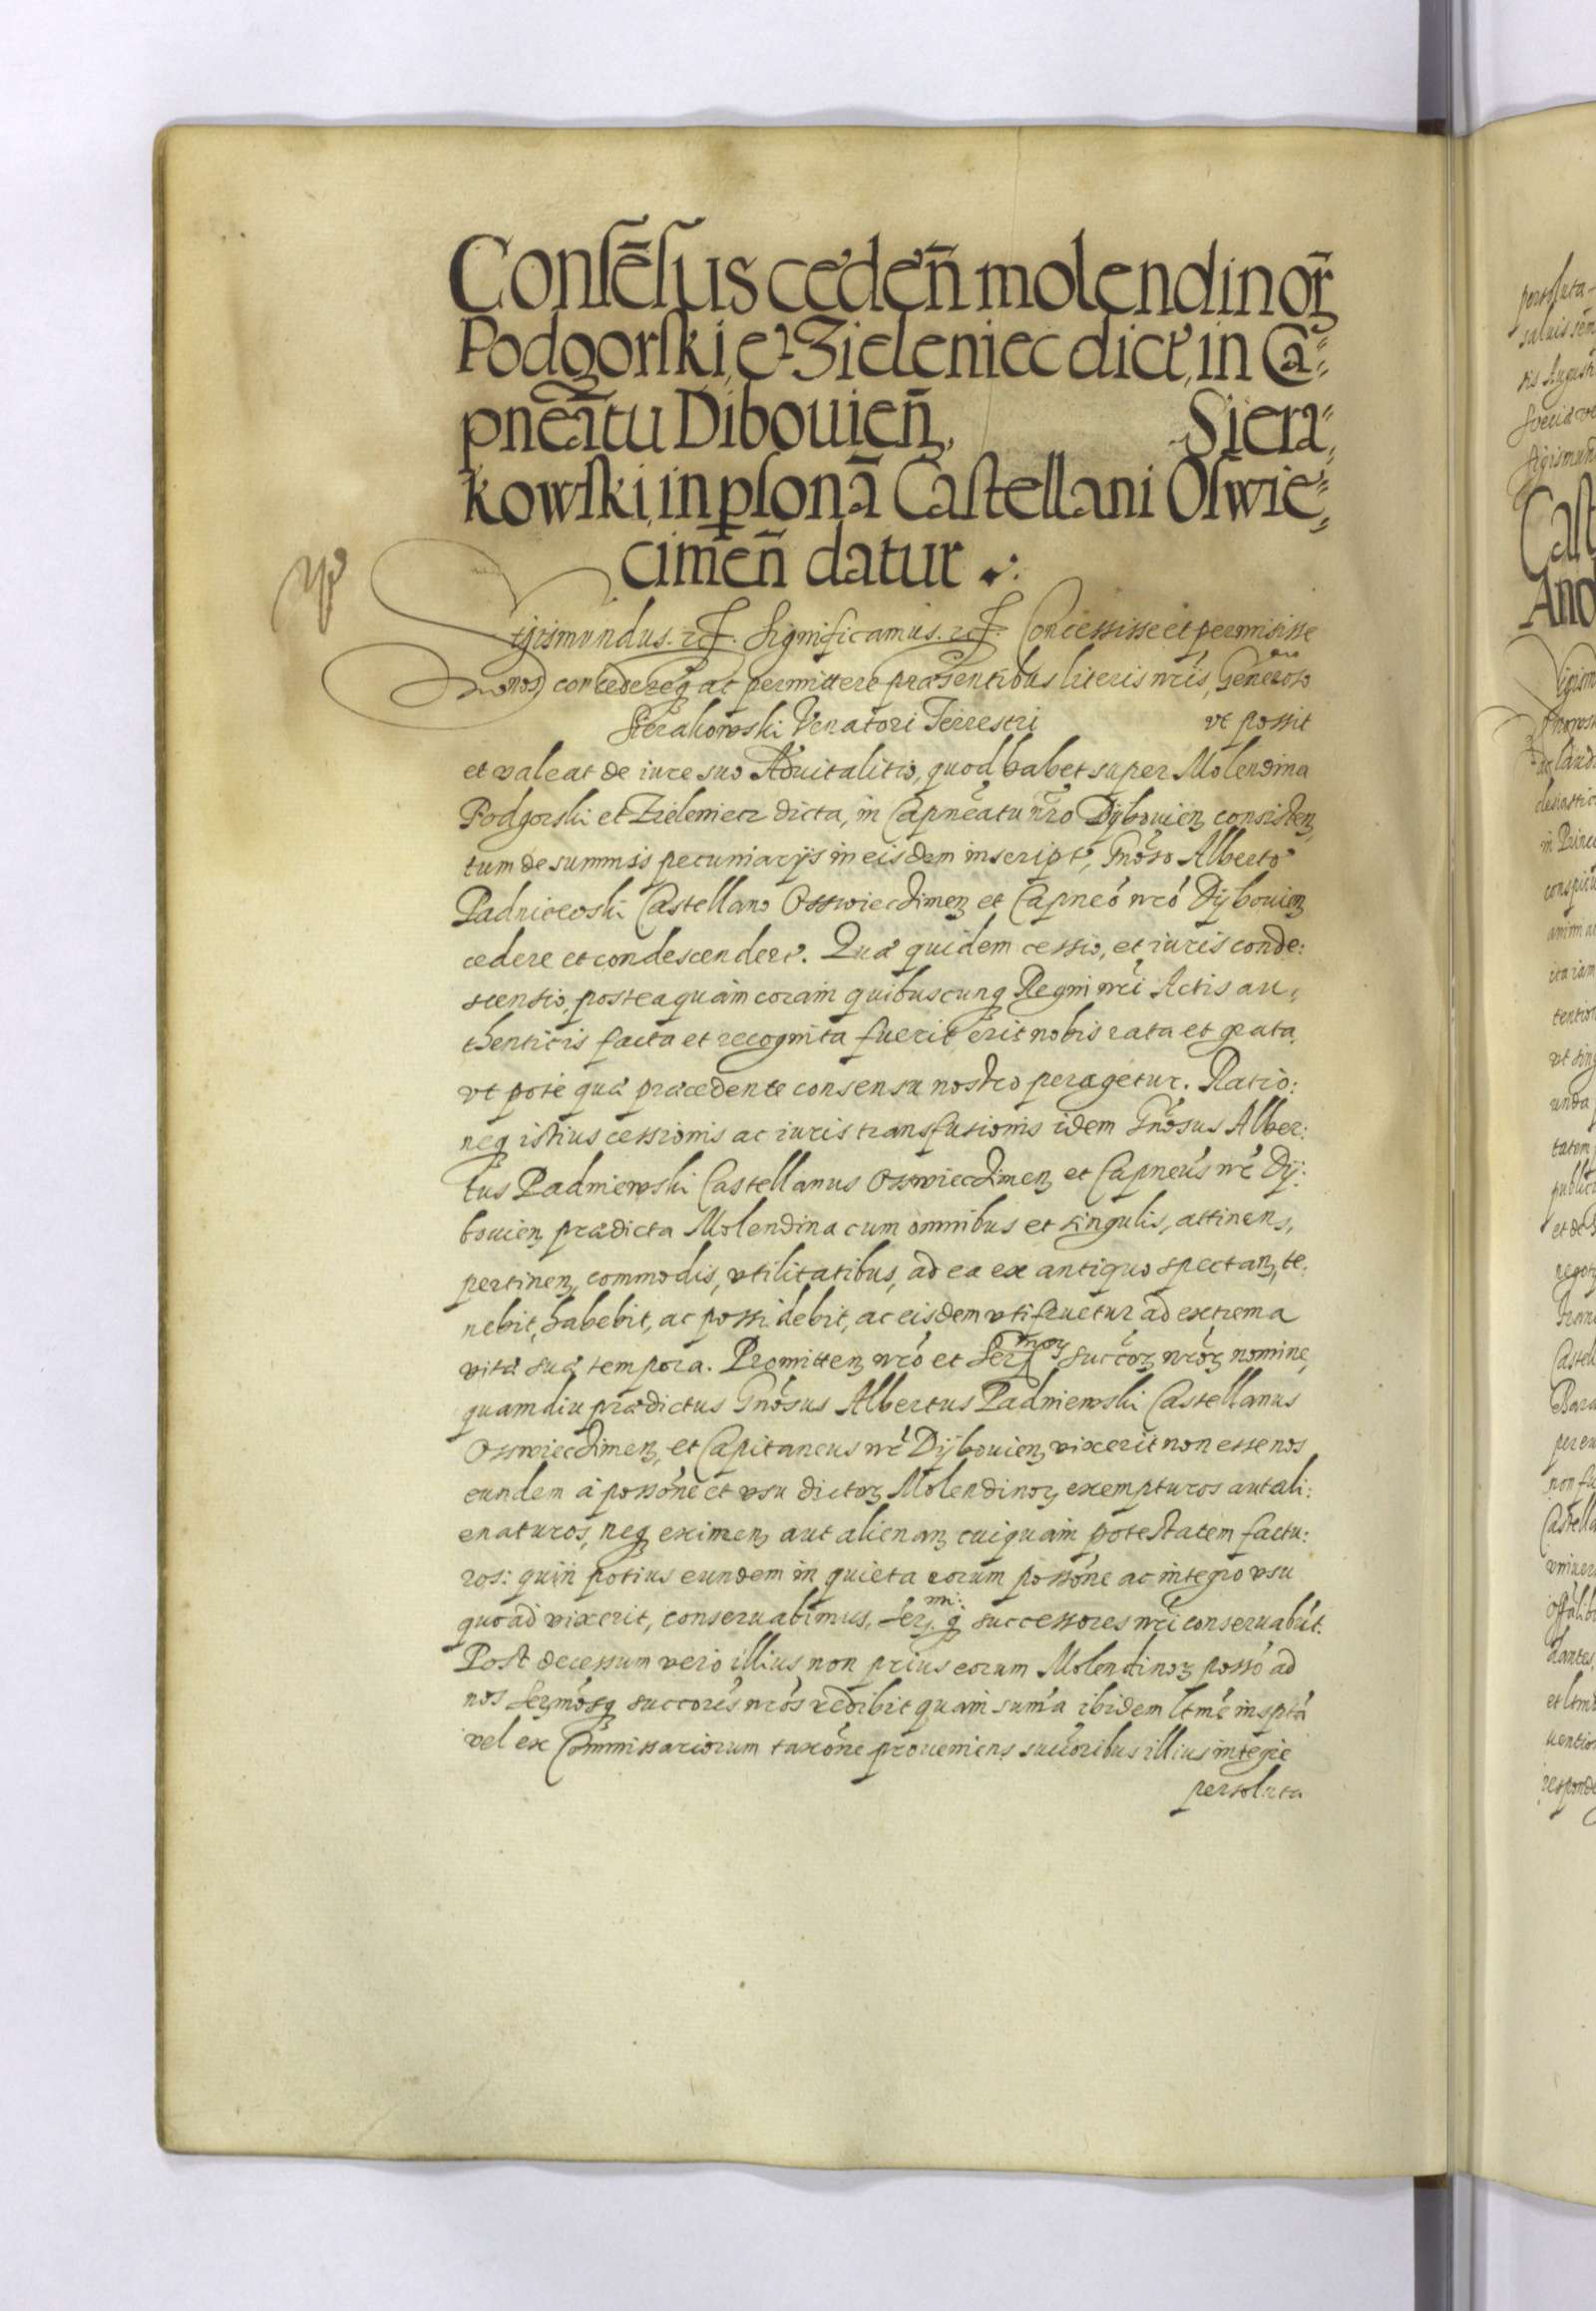 Consẽsus cedeñ molendinoꝝ
Podgorski, et Zieleniec dict, in Ca⸗
pneatu Diboуieñ, Siera⸗
kowski, in ꝑsonã Castellani Oswie⸗
cimeñ datur
Sigismundus. etc. Significamus. etc. Concessisse et permisisse
nos, concedereqꝫ ac permittere præsentibus literis nr̃is, Generoso
Sierakowski Venatori Terrestri vt possit
et valeat de iure suo Aduitalitio, quod habet super Molendina
Podgorski et Zieleniecz dicta, in Capneatu nr̃o Dybouieñ consisteñ,
tum de summis pecuniarijs in eisdem inscript, Gnõso Alberto
Padniewski Castellano Osswiecdimeñ et Capneo nr̃o Dybouieñ
cedere et condescendere. Quæ quidem cessio, et iuris conde:
scensio, posteaquam coram quibuscunqꝫ Regni nr̃i Actis au,
thenticis facta et recognita fuerit erit nobis rata et grata,
vt pote quæ præcedente consensu nostro peragetur. Ratio:
neqꝫ istius cessionis ac iuris transfusionis idem Gnõsus Alber:
tus Padniewski Castellanus Osswiecdimeñ et Capneus nr̃ Dy:
bouieñ prædicta Molendina cum omnibus et singulis, attineñ,
pertineñ, commodis, vtilitatibus, ad ea ex antiquo spectañ, te:
nebit, habebit, ac possidebit, ac eisdem vtifruetur ad extrema
vitæ suæ tempora. Promitteñ nr̃o et Ser moꝝ succõꝝ nr̃oꝝ nomine,
quamdiu prædictus Gnõsus Albertus Padniewski Castellanus
Osswiecdimeñ, et Capitaneus nr̃ Dybouieñ vixerit non esse nos
eundem à possõne et vsu dictoꝝ Molendinoꝝ exempturos aut ali:
enaturos, neqꝫ eximeñ aut alienañ cuiquam potestatem factu:
ros: quin potius eundem in quieta eorum possõne ac integro vsu
quoad vixerit, conseruabimus, Ser mi: qꝫ successores nr̃i conseruabũt.
Post decessum vero illius, non prius eorum Molendinoꝝ possõ ad
nos Sermõsqꝫ succorẽs nr̃os redibit quam suma ibidem ltmẽ insptã
vel ex Commissariorum taxõne proueniens succoribus illius integre
persoluta